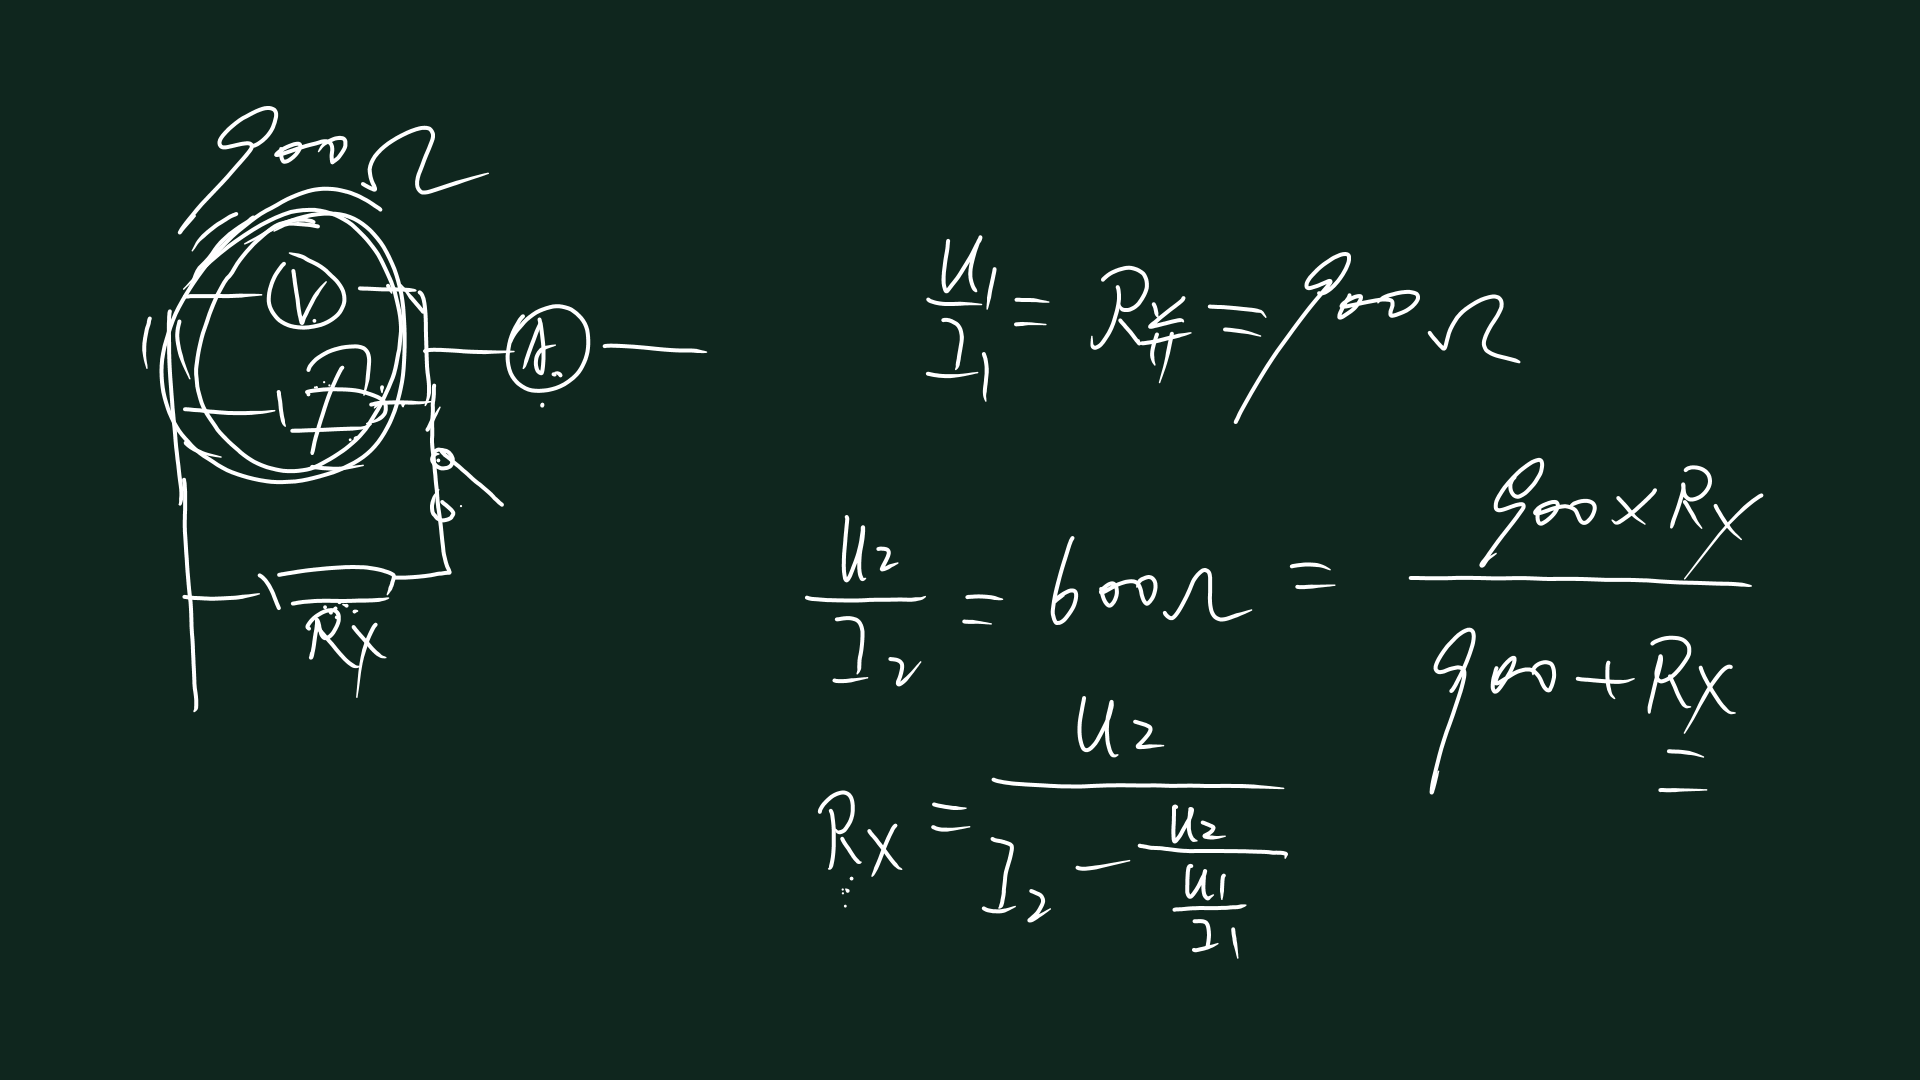 900Ω
V
A
R
Rx
U₁/I₁ = R并 = 900Ω
U₂/I₂ = 600Ω = (900×Rx)/(900+Rx)
Rx = U₂/(I₂ - U₂/(U₁/I₁))